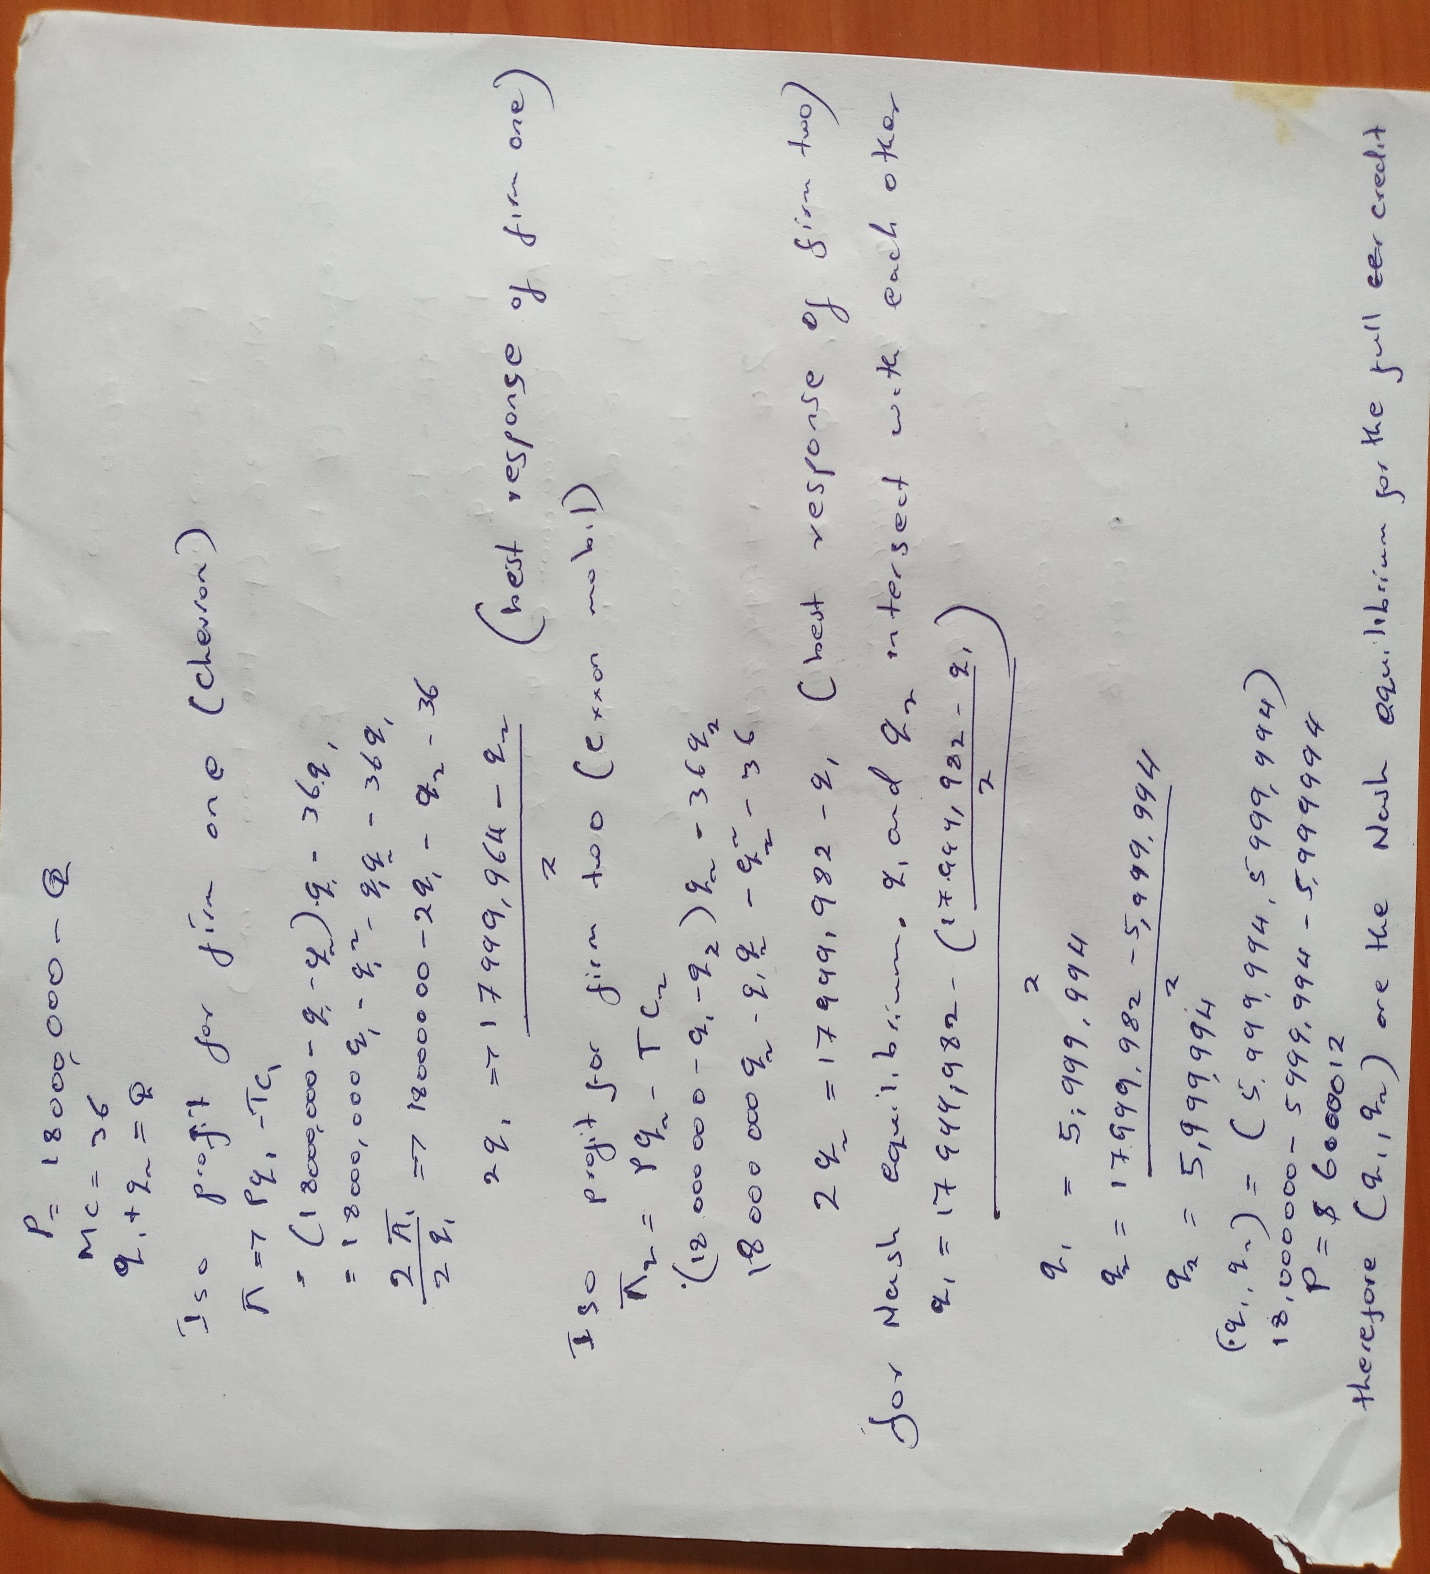 P = 18000,000 - Q
MC = 36
q₁ + q₂ = Q
Iso profit for firm one (chevron)
π => Pq₁ - TC₁
= (18000,000 - q₁ - q₂) q₁ - 36q₁
= 18000,000q₁ - q₁² - q₁q₂ - 36q₁
∂π₁/∂q₁ => 18000000 - 2q₁ - q₂ - 36
2q₁ => 17999,964 - q₂ / 2 (best response of firm one)
Iso profit for firm two (exxon mobil)
π₂ = Pq₂ - TC₂
(18000000 - q₁ - q₂) q₂ - 36q₂
18000000q₂ - q₁q₂ - q₂² - 36
2q₂ = 17999,982 - q₁ (best response of firm two)
for Nash equilibrium, q₁ and q₂ intersect with each other
q₁ = 17999,982 - (17999,982 - q₁ / 2) / 2
q₁ = 5,999,994
q₂ = 17999,982 - 5,999,994 / 2
q₂ = 5,999,994
(q₁, q₂) = (5,999,994, 5999,994)
18,000000 - 5999,994 - 5,999994
P = $ 6000012
therefore (q₁, q₂) are the Nash equilibrium for the full credit